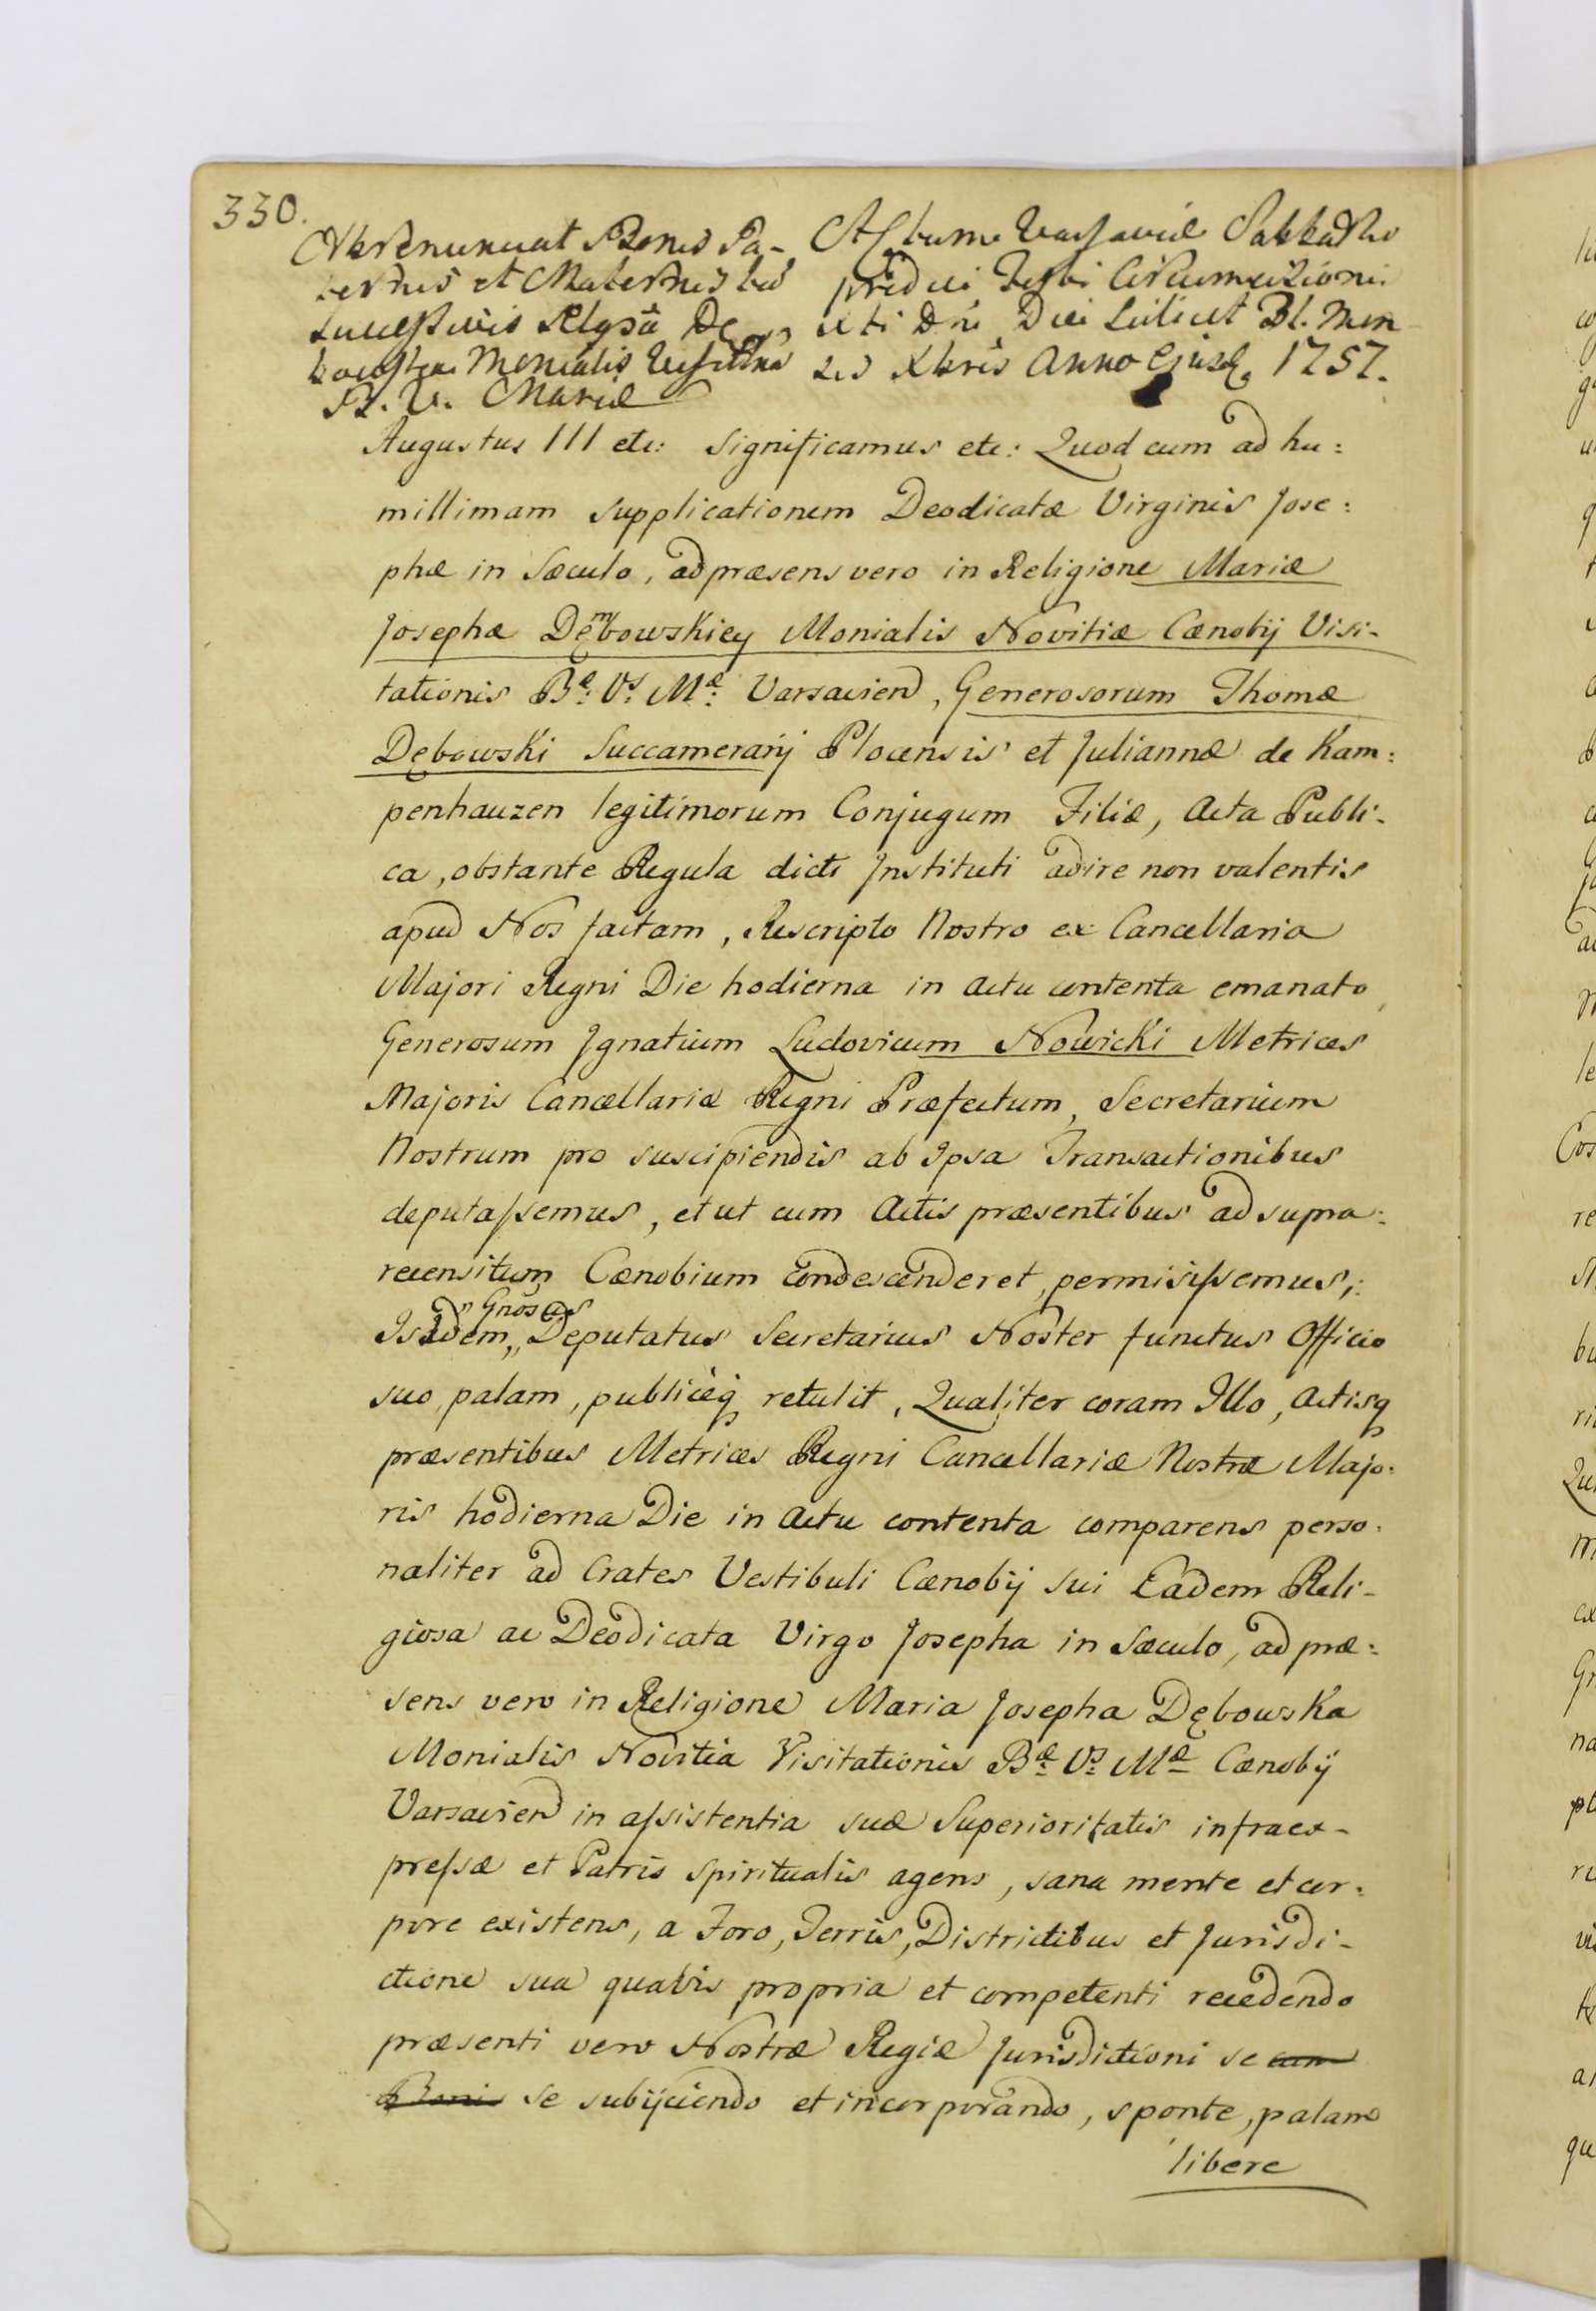 330.
Abrenunciat Bonis Pa-
ternis et Maternis
Successivis Relgsa De
Monialis
B. V. Mariæ
Actum Varsaviæ Sabbatho
pridie Festi Circumcisionis
Xti Dni Die Scilicet 31. Men
sis Xbris Anno Ejusd. 1757.
Augustus III etc: Significamus etc: Quod cum ad hu:
millimam supplicationem Deodicatæ Virginis Jose:
phæ in Sæculo, ad præsens vero in Religione Mariæ
Josephæ Dęmbowskiey Monialis Novitiæ Cænobij Visi-
tationis Bæ: Vs: Mæ: Varsavien, Generosorum Thomæ
Dębowski Succamerarij Plocensis et Juliannæ de Kam:
penhauzen legitimorum Conjugum Filiæ, Acta Publi-
ca, obstante Regula dicti Instituti adire non valentis
apud Nos factam, Rescripto Nostro ex Cancellaria
Majori Regni Die hodierna in Actu contenta emanato
Generosum Ignatium Ludovicum Nowicki Metrices
Majoris Cancellariæ Regni Præfectum, Secretarium
Nostrum pro suscipiendis ab Ipsa Transactionibus
deputassemus, et ut cum Actis præsentibus ad supra:
recensitum Cænobium condescenderet, permisissemus,:
Isdem,, Gnosus Deputatus Secretarius Noster functus Officio
suo, palam, publiceq retulit, Qualiter coram Illo, Actisq
præsentibus Metrices Regni Cancellariæ Nostræ Majo:
ris hodierna Die in Actu contenta comparens perso:
naliter ad Crates Vestibuli Cænobij sui Eadem Reli-
giosa ac Deodicata Virgo Josepha in Sæculo, ad præ:
sens vero in Religione Maria Josepha Dębowska
Monialis Novitia Visitationis Bæ: Vs: Mæ Cænobij
Varsavien in assistentia suæ Superioritatis infraex-
pressæ et Patris spiritualis agens, sana mente et cor:
pore existens, a Foro, Terris, Districtibus et Jurisdi-
ctione sua quavis propria et competenti recedendo
præsenti vero Nostræ Regiæ Jurisdictioni se cum
Boni se subijciendo et incorporando, sponte, palam
libere